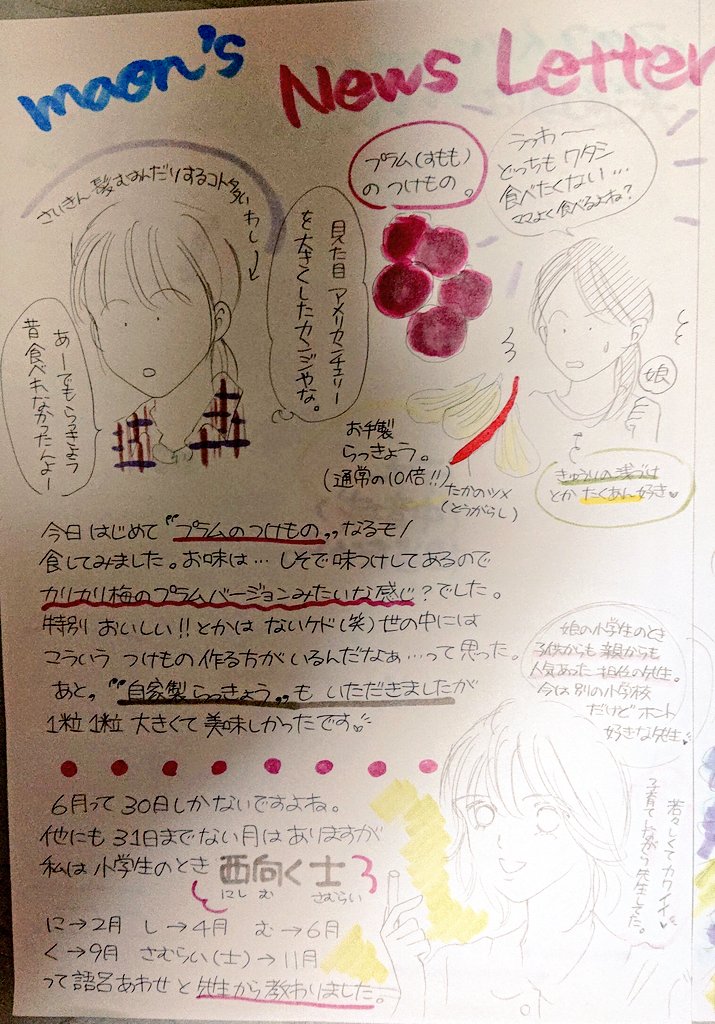 maon's News Letter
さいきん髪むすんだりするコト多い
わし
見た目アメリカンチェリー
を大きくしたカンジやな。
あーでもらっきょう
昔食べれなかったんよー
プラム(すもも)
のつけもの。
うっわー
どっちもワタシ
食べたくない…
ママよく食べるよね?
娘
お手製
らっきょう。
(通常の10倍!!)
たかのツメ
(とうがらし)
きゅうりの浅づけ
とかたくあん好き
今日はじめて"プラムのつけもの"なるモノ
食してみました。お味は…しそで味つけしてあるので
カリカリ梅のプラムバージョンみたいな感じ?でした。
特別おいしい!!とかはないケド(笑)世の中には
こういうつけもの作る方がいるんだなぁ…って思った。
あと、"自家製らっきょう"もいただきましたが
1粒1粒大きくて美味しかったです
娘の小学生のとき
子供からも親からも
人気あった担任の先生。
今は別の小学校
だけどホント
好きな先生
若々しくてカワイイ
子育てしながら先生してた。
6月って30日しかないですよね。
他にも31日までない月はありますが
私は小学生のとき西向く士
にしむ さむらい
に→2月 し→4月 む→6月
く→9月 さむらい(士)→11月
って語呂あわせと先生から教わりました。